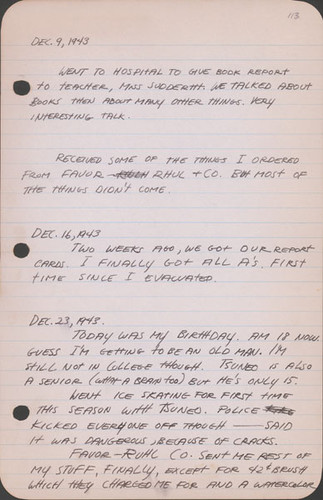 113
DEC. 9, 1943
WENT TO HOSPITAL TO GIVE BOOK REPORT
TO TEACHER, MISS SUDDERTH. WE TALKED ABOUT
BOOKS THEN ABOUT MANY OTHER THINGS. VERY
INTERESTING TALK.
RECEIVED SOME OF THE THINGS I ORDERED
FROM FAVOR RHUL + CO. BUT MOST OF
THE THINGS DIDN'T COME.
DEC. 16, 1943
TWO WEEKS AGO, WE GOT OUR REPORT
CARDS. I FINALLY GOT ALL A'S. FIRST
TIME SINCE I EVACUATED.
DEC. 23, 1943.
TODAY WAS MY BIRTHDAY. AM 18 NOW.
GUESS I'M GETTING TO BE AN OLD MAN. I'M
STILL NOT IN COLLEGE THOUGH. TSUNEO IS ALSO
A SENIOR (WHAT A BRAIN TOO) BUT HE'S ONLY 15.
WENT ICE SKATING FOR FIRST TIME
THIS SEASON WITH TSUNEO. POLICE
KICKED EVERYONE OFF THOUGH — SAID
IT WAS DANGEROUS, BECAUSE OF CRACKS.
FAVOR-RUHL CO. SENT ME REST OF
MY STUFF, FINALLY, EXCEPT FOR 42¢ BRUSH
WHICH THEY CHARGED ME FOR AND A WATERCOLOR